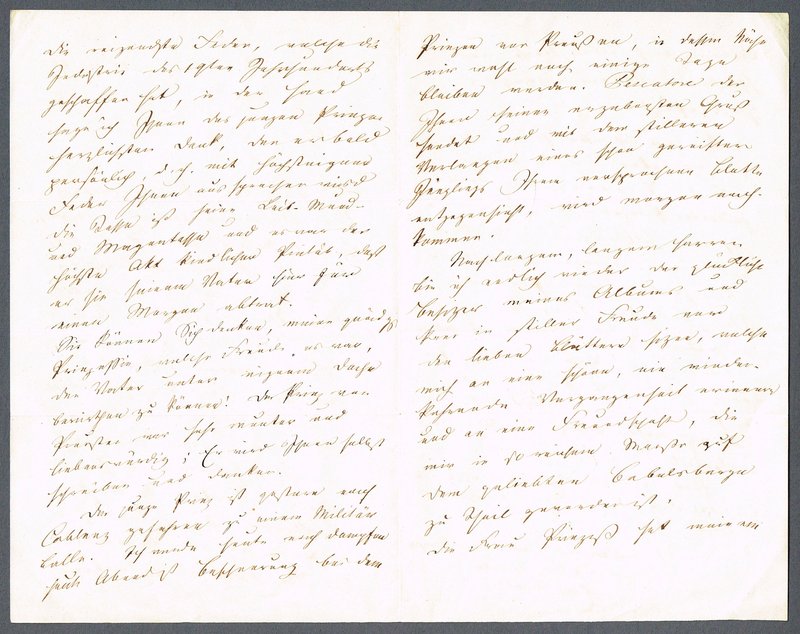 die reizendste Feder, welche die
Industrie des 19ten Jahrhunderts
geschaffen hat, in der Hand
sage ich Ihnen des jungen Prinzen
herzlichsten Dank, den er bald
persönlich, d. h. mit höchsteigner
Feder Ihnen aussprechen wird
die Tasse ist seine Leib- Mund-
und Magentasse und es war der
höchste Akt kindlicher Pietät, daß
er sie seinem Vater hier für
einen Morgen abtrat.
Sie können Sich denken, meine gnädigste
Prinzessin, welche Freude es war,
den Vater unter eignem Dache
bewirthen zu können! Der Prinz von
Preussen war sehr munter und
liebenswürdig; Er wird Ihnen selbst
schreiben und danken.
Der junge Prinz ist gestern nach
Coblenz gefahren zu einem Militär
Balle. Ich werde heute nach dampfen
heute Abend ist Bescheerung bei dem
Prinzen von Preußen, in dessen Nähe
wir wohl noch einige Tage
bleiben werden. Pescatore der
Ihnen seinen ergebensten Gruß
sendet und mit dem stilleren
Verlangen eines schon gereiften
Jünglings Ihrem versprochenen Blatte
entgegensieht, wird morgen nach-
kommen.
Nach langem, langem Harren
bin ich endlich wieder der glückliche
Besitzer meines Albums und
kann in stiller Freude vor
den lieben Blättern sitzen, welche
mich an eine schöne, nie wieder-
kehrende Vergangenheit erinnern
und an eine Freundschaft, die
mir in so reichem Maaße auf
dem geliebten Babelsberge
zu Theil geworden ist.
Die Frau Prinzeß hat meinem